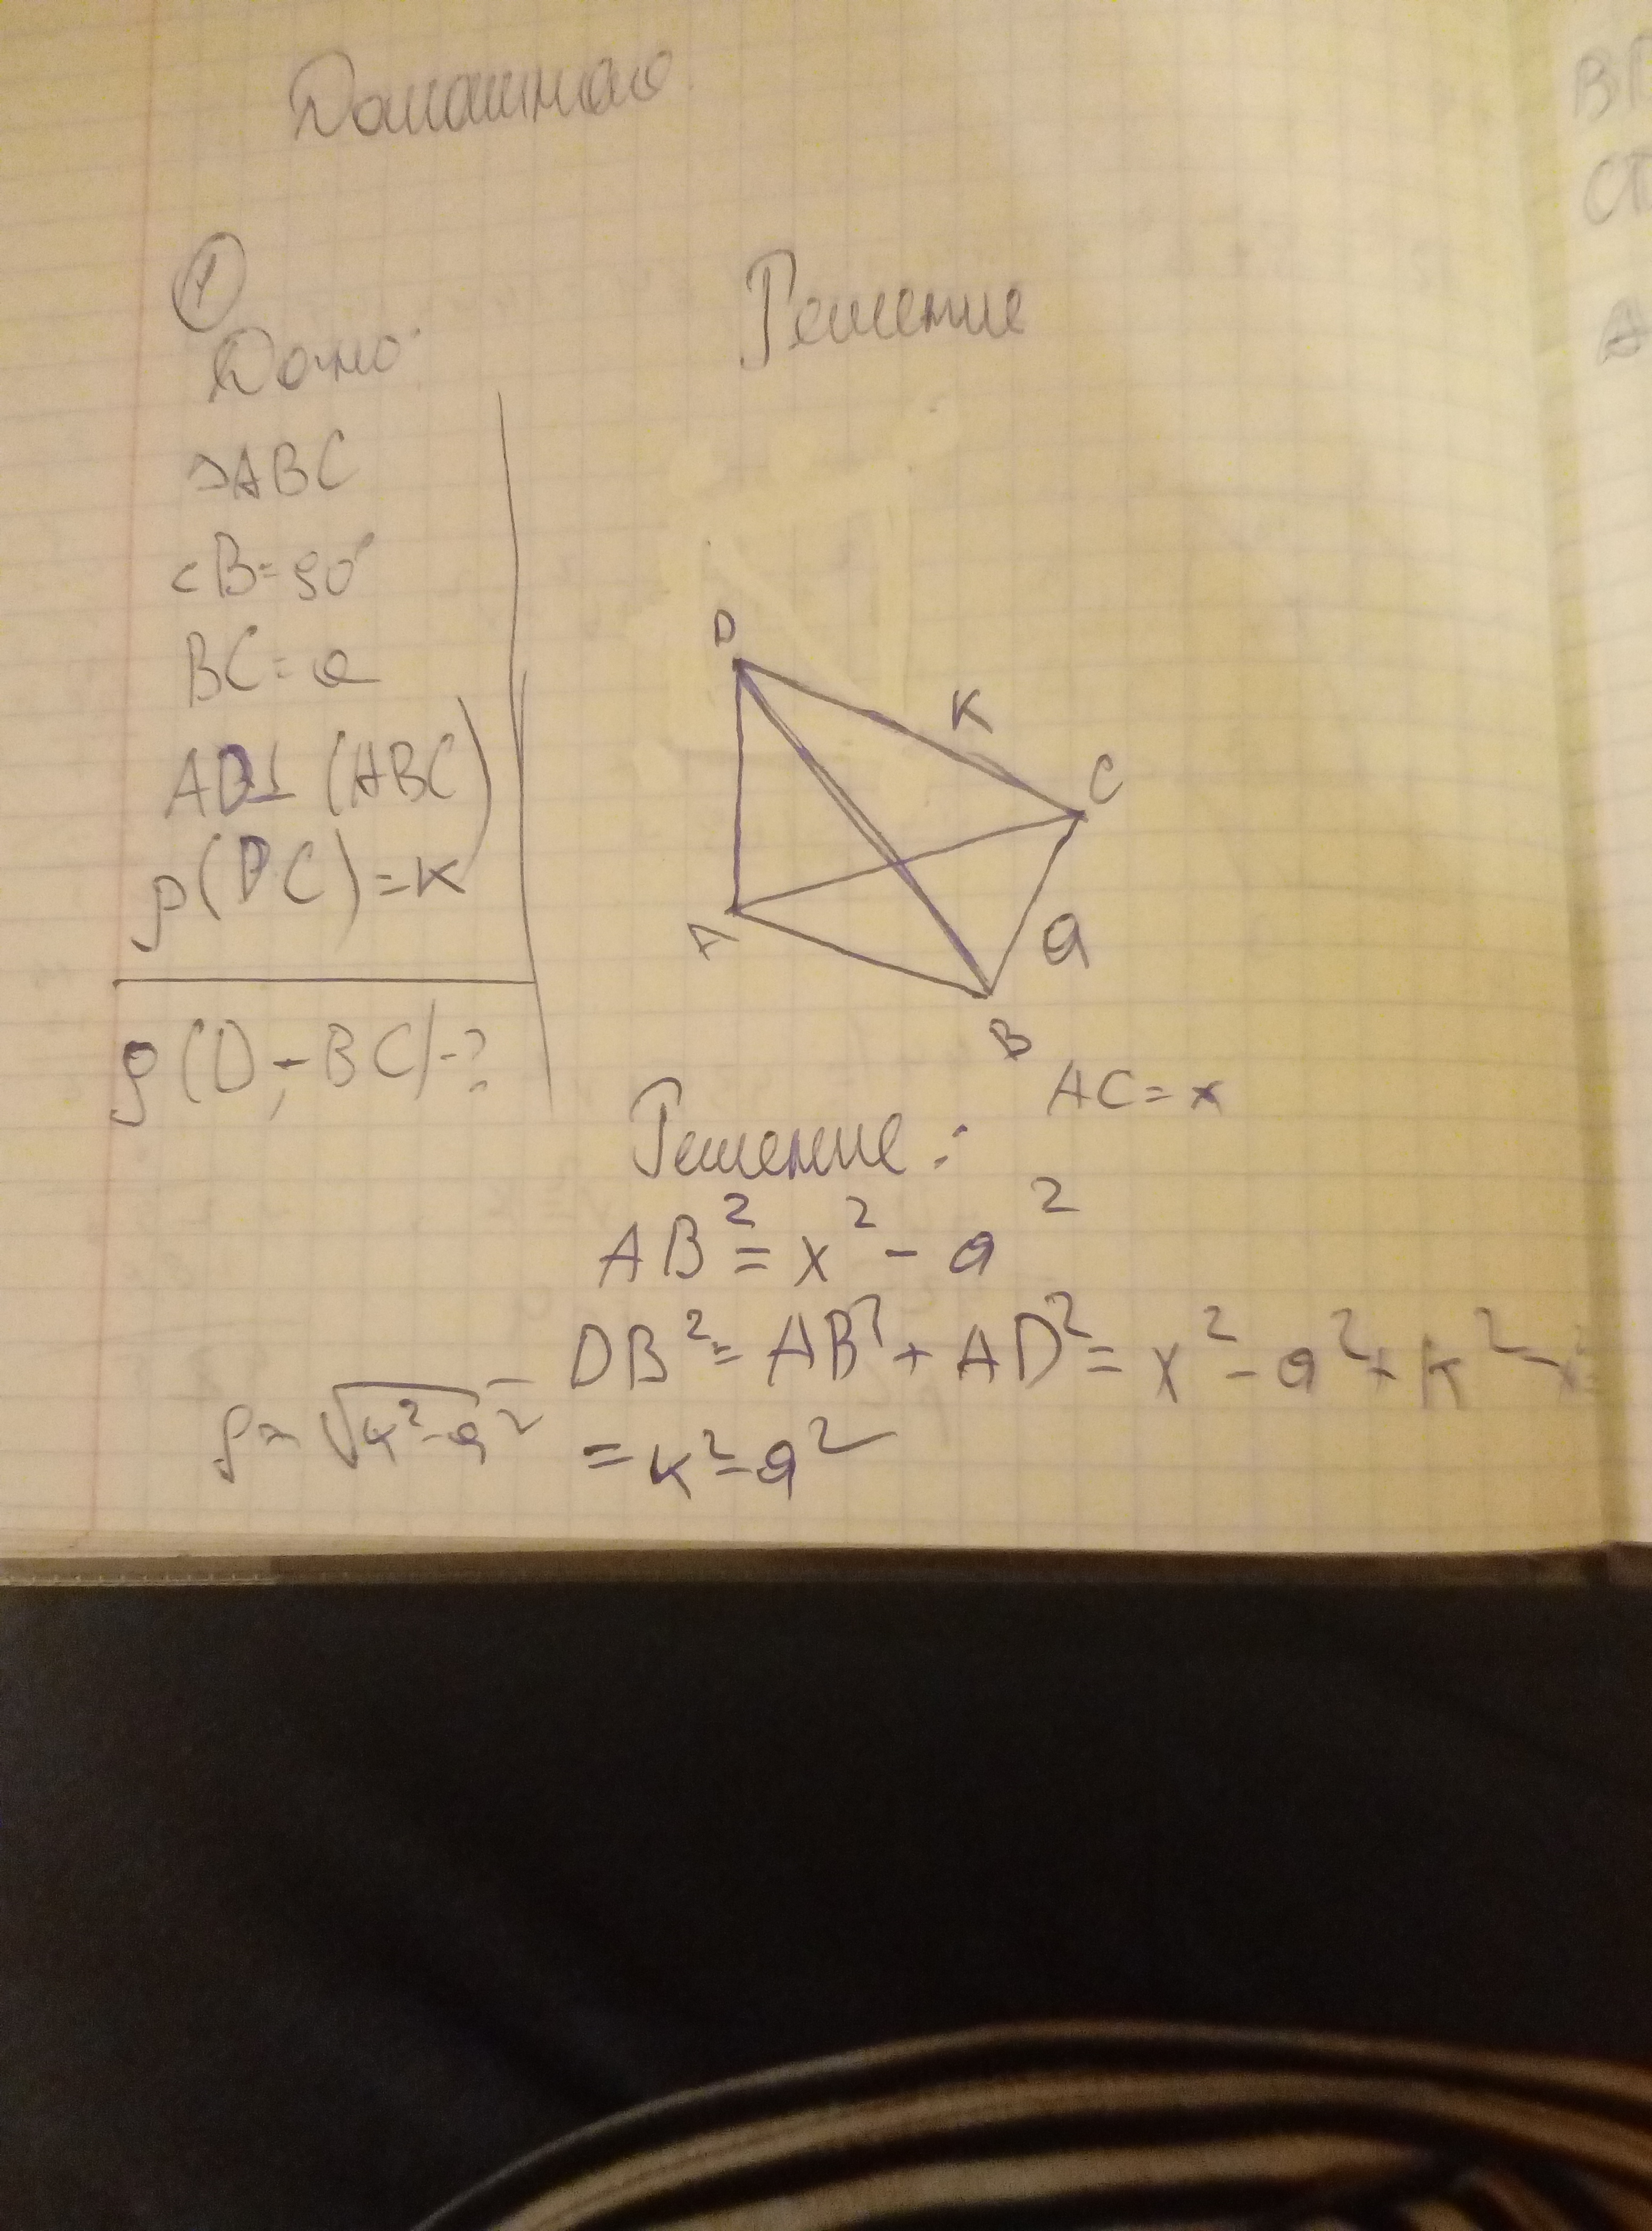 Домашняя
1
Дано:
△ABC
∠B=90°
BC=a
AD⊥(ABC)
ρ(DC)=K
ρ(D;-BC)-?
Решение
D
K
C
A
a
B
AC=x
Решение:
AB²=x²-a²
DB²=AB²+AD²=x²-a²+K²-x²
=K²-a²
ρ=√K²-a²
BП
A